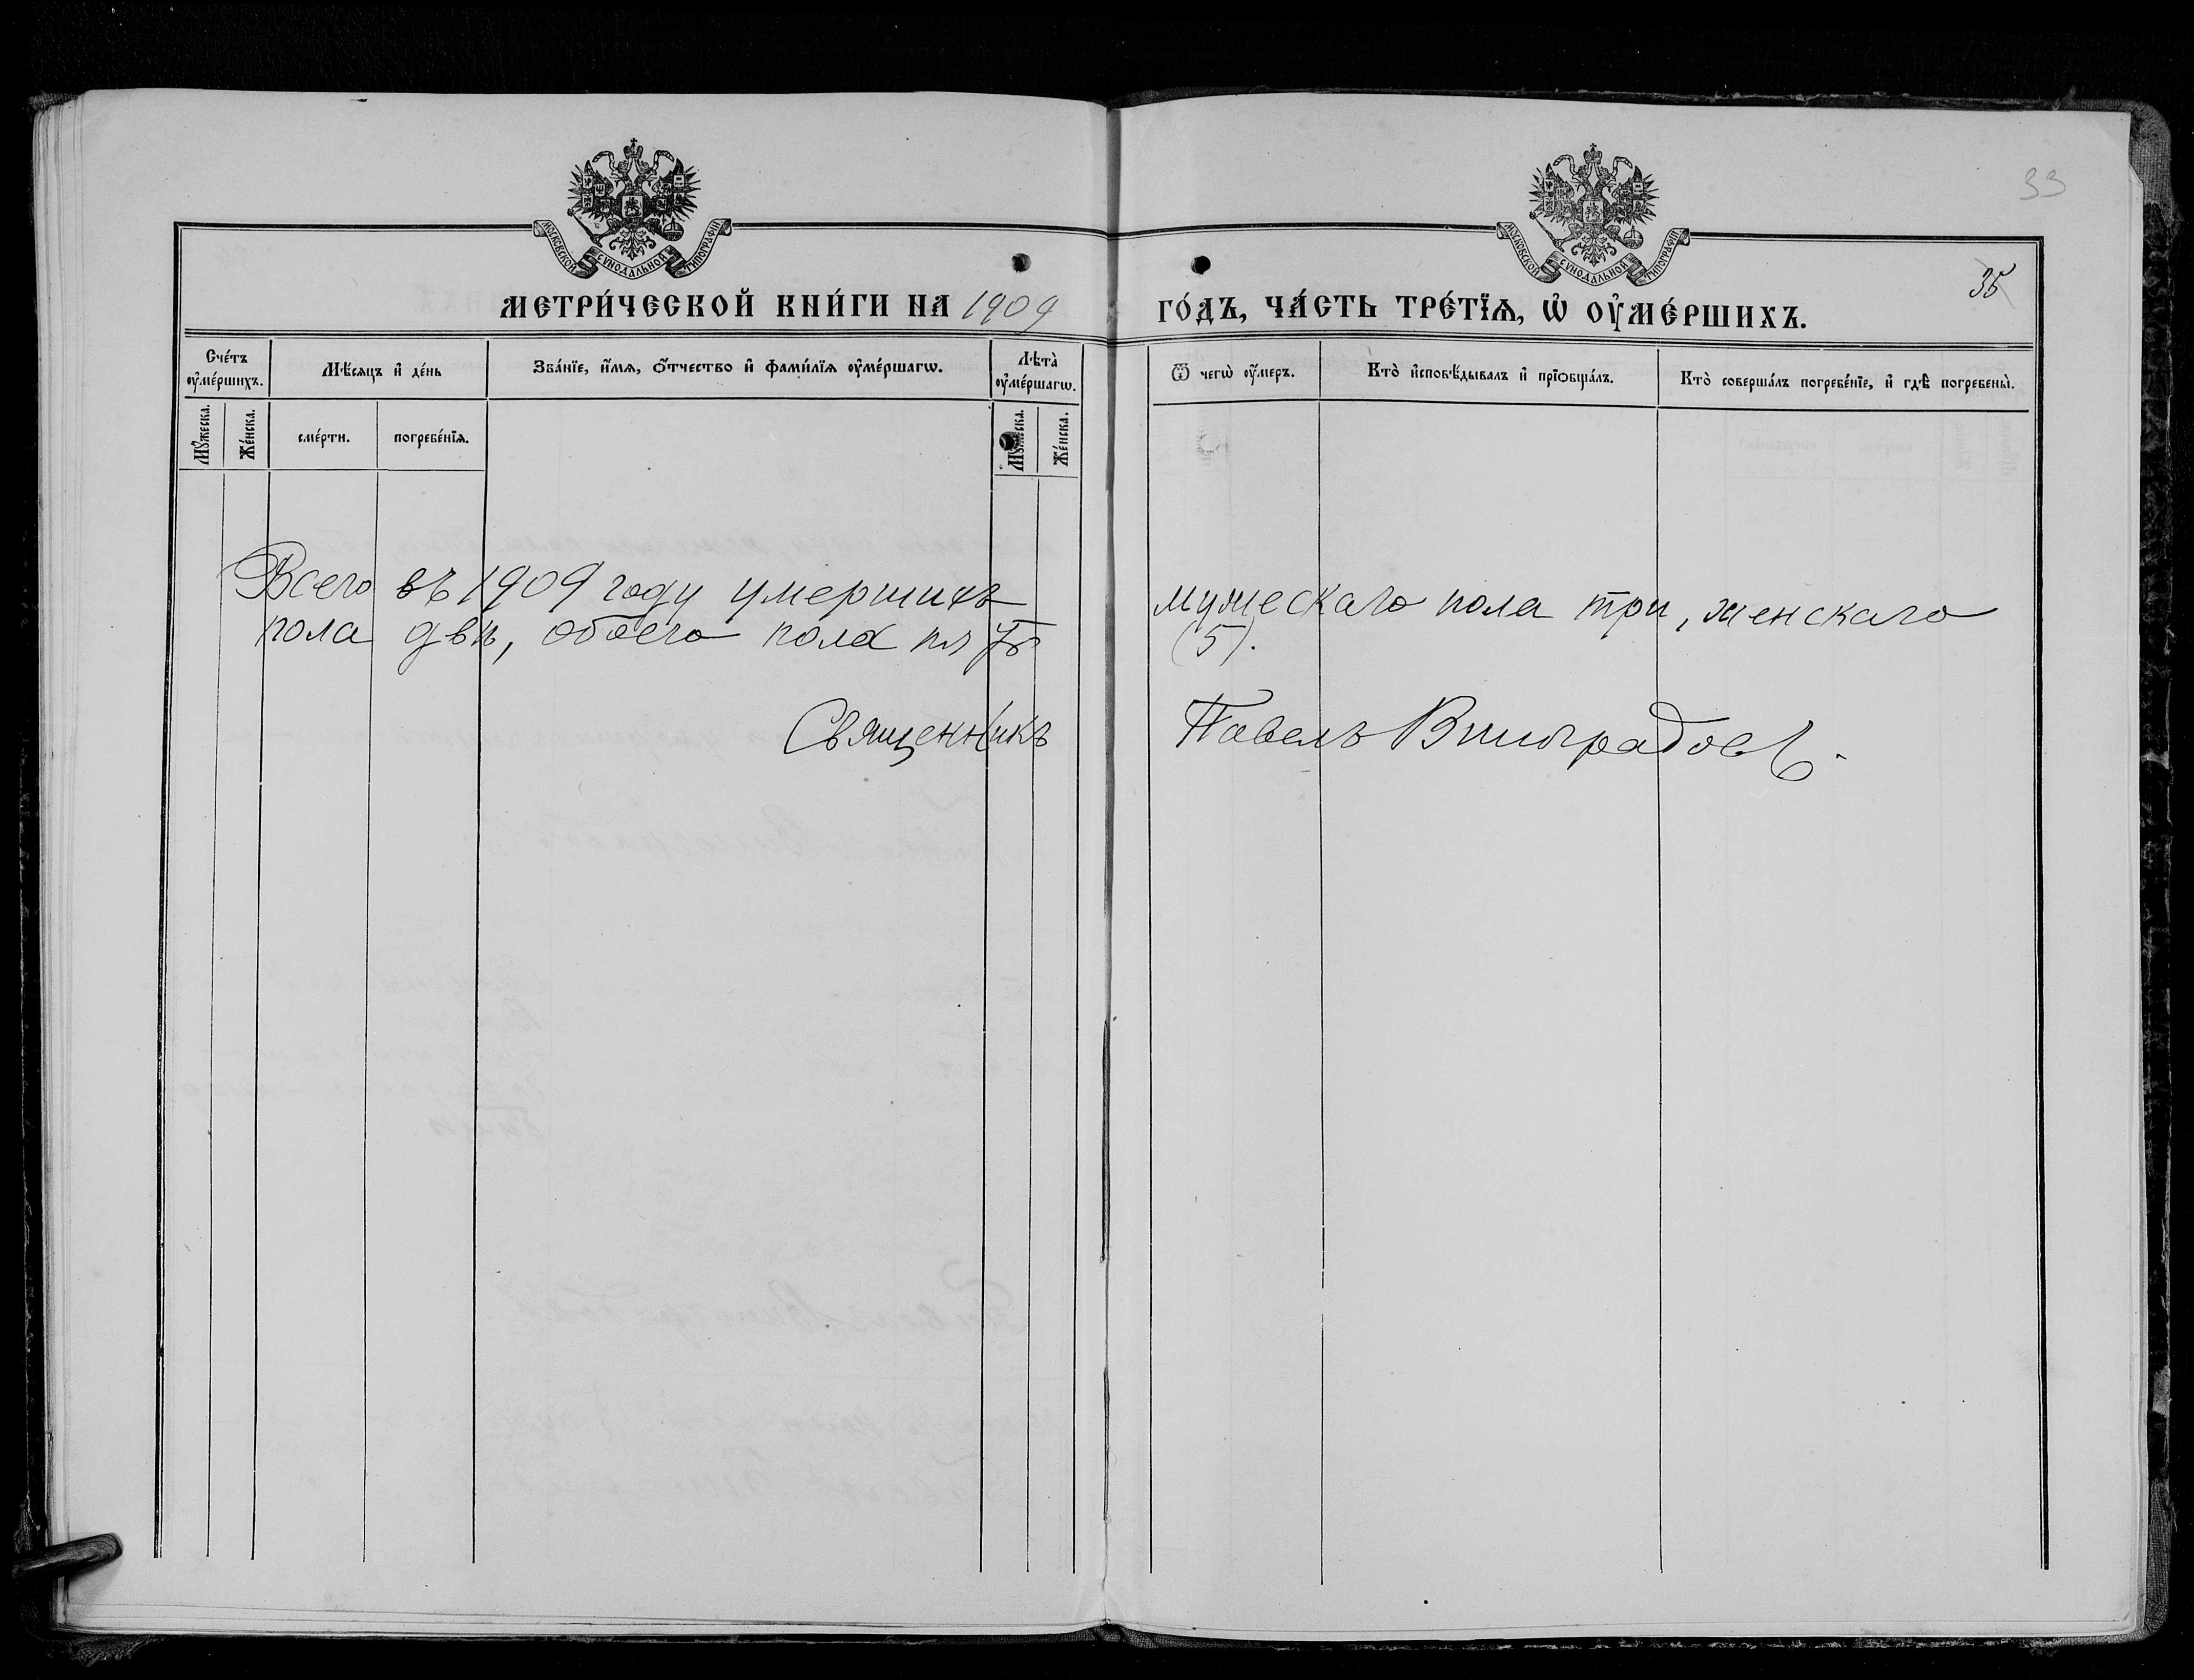 МОСКОВСКОЙ СѴНОДАЛЬНОЙ ТИПОГРАФІИ
МОСКОВСКОЙ СѴНОДАЛЬНОЙ ТИПОГРАФІИ
33
35
МЕТРИ́ЧЕСКОЙ КНИ́ГИ НА 1909 ГО́ДЪ, ЧА́СТЬ ТРЕ́ТЇѦ, Ѡ҆ ОУ҆МЕ́РШИХЪ.
Сче́тъ оу҆ме́ршихъ.
Мѣ́сяцъ и҆ де́нь
Зва́нїе, и҆́мѧ, ѻ҆́тчество и҆ фами́лїѧ оу҆ме́ршагѡ.
Лѣта̀ оу҆ме́ршагѡ.
Ѿ чегѡ̀ оу҆́меръ.
Кто̀ и҆сповѣ́дывалъ и҆ прїѡбща́лъ.
Кто̀ соверша́лъ погребе́нїе, и҆ гдѣ̀ погребены̀.
Мꙋ́жеска.
Же́нска.
сме́рти.
погребе́нїѧ.
Мꙋ́жеска.
Же́нска.
Всего въ 1909 году умершихъ мужескаго пола три, женскаго
пола двѣ, обоего пола пять (5).
Священникъ Павелъ Виноградовъ.